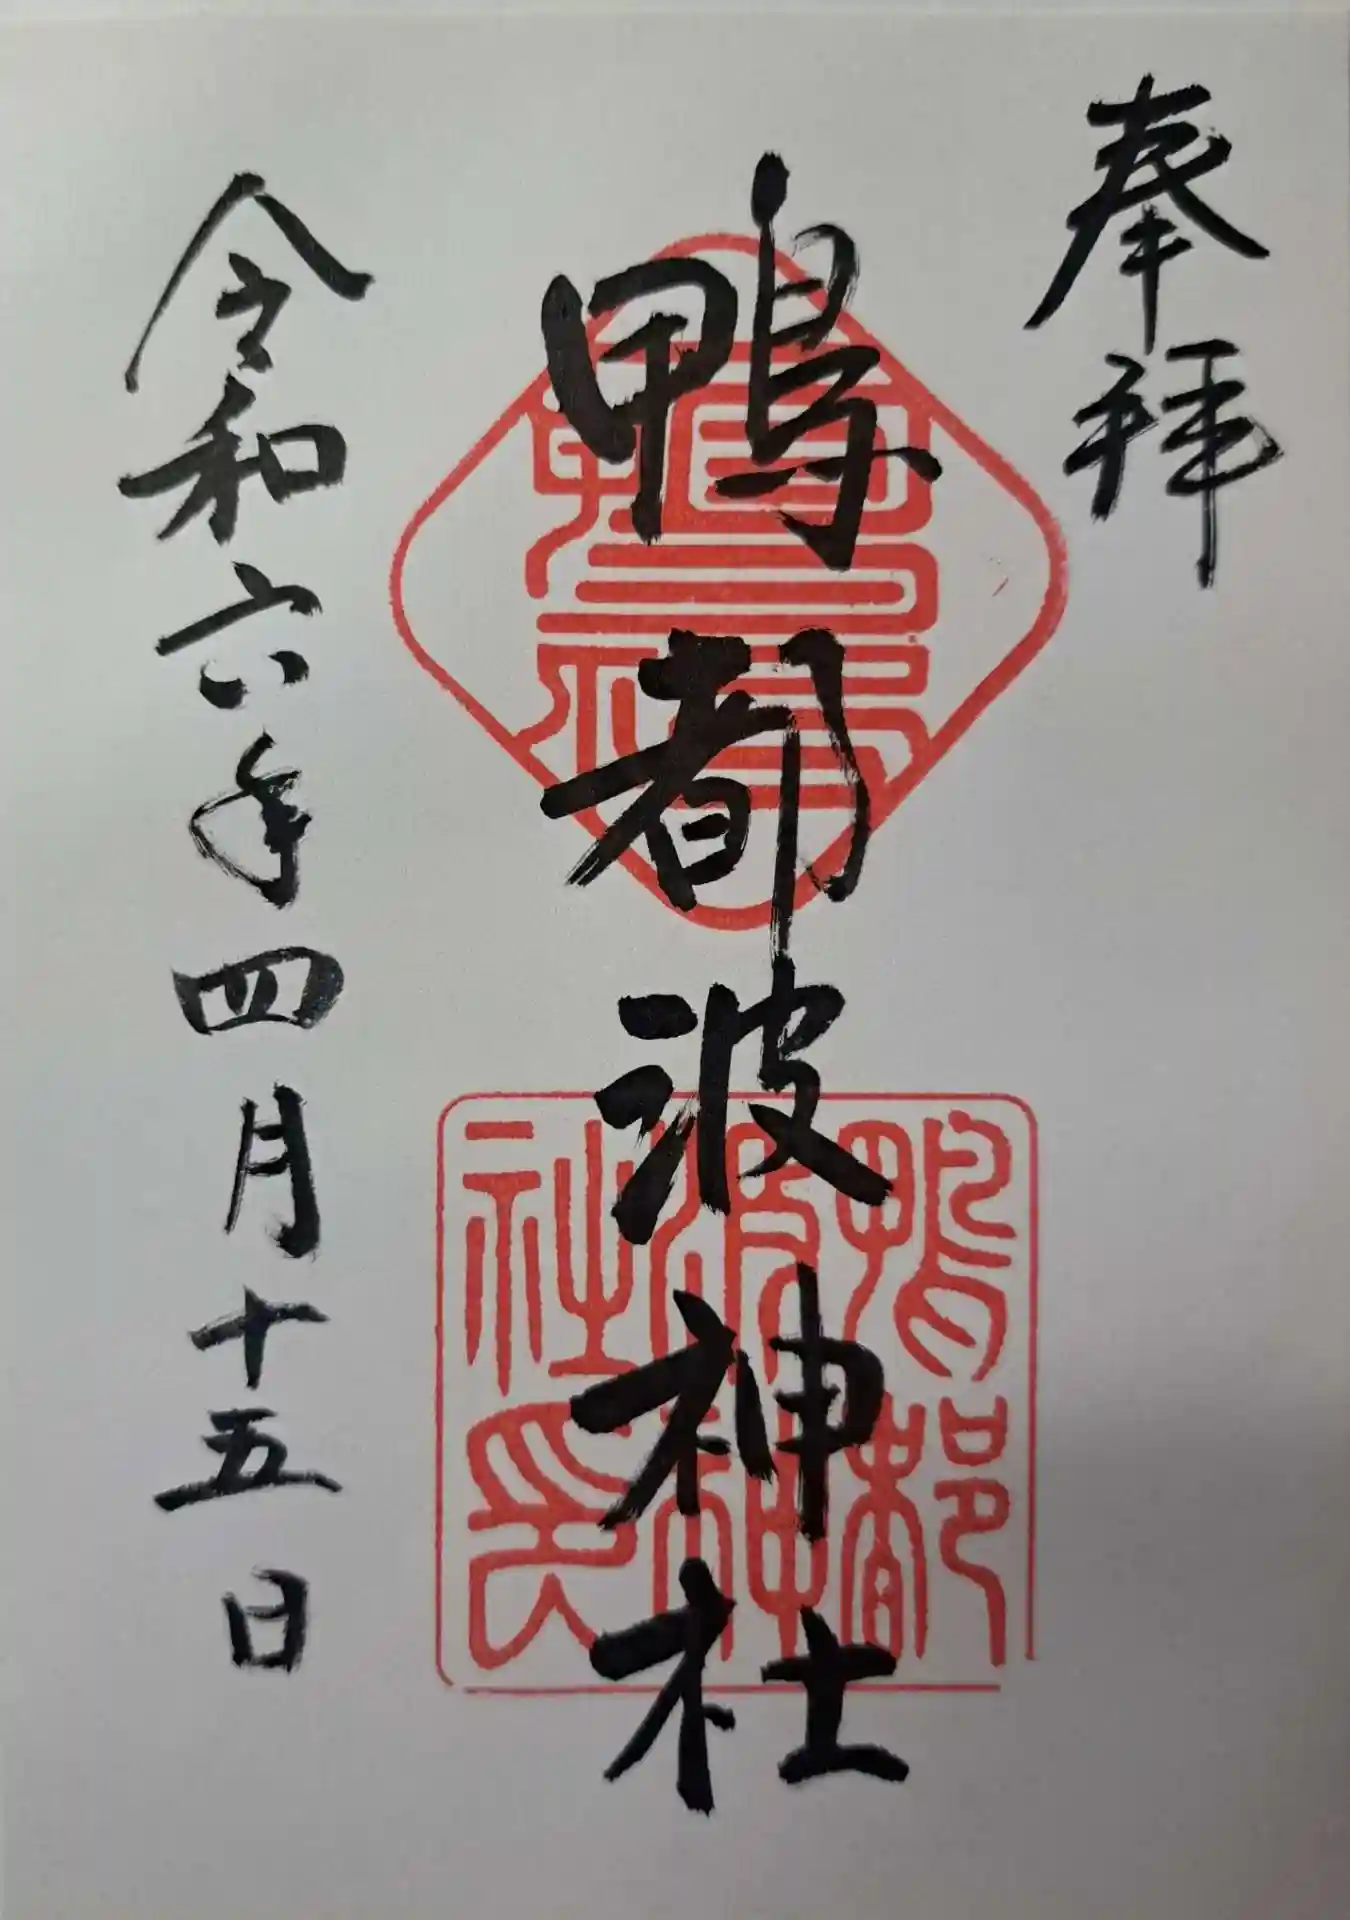 奉拝
鴨都波神社
令和六年四月十五日
鴨都波神社印